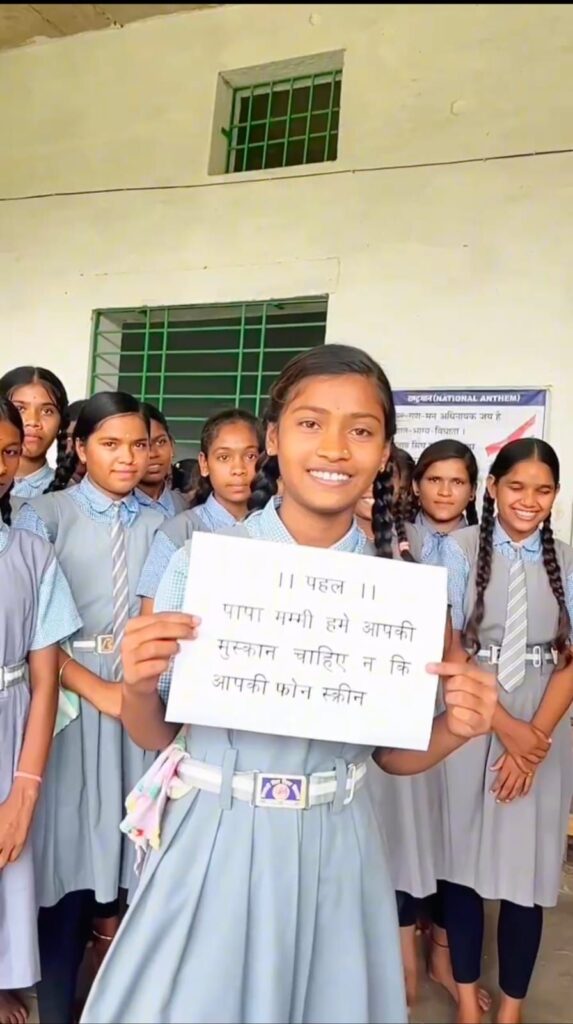 राष्ट्रगान (NATIONAL ANTHEM)
-गण-मन अधिनायक जय हे
भाग्य-विधाता ।
|| पहल ||
पापा मम्मी हमे आपकी
मुस्कान चाहिए न कि
आपकी फोन स्क्रीन